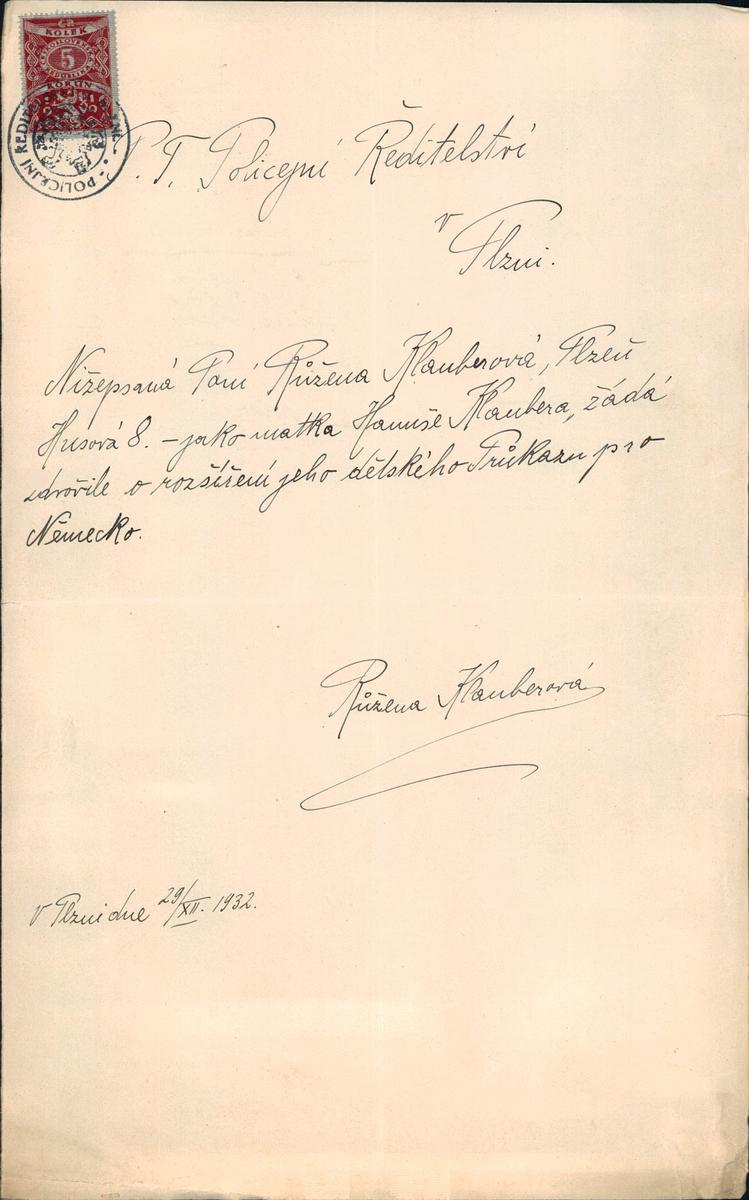 KOLEK
ČESKOSLOVENSKÁ
5
REPUBLIKA
KORUN
POLICEJNÍ ŘEDITEL
P. T. Policejní Ředitelství
v
Plzni.
Nížepsaná Paní Růžena Klauberová, Plzeň
Husová 8. – jako matka Hanuše Klaubera, žádá
zdvořile o rozšíření jeho dětského Průkazu pro
Německo.
Růžena Klauberová
v Plzni dne 29/XII. 1932.